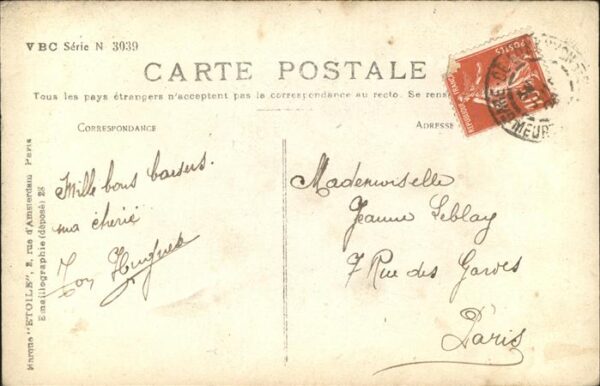 VBC Série N 3039
CARTE POSTALE
Tous les pays étrangers n'acceptent pas la correspondance au recto. Se rens
CORRESPONDANCE
ADRESSE
Mille bons baisers
ma chérie
Ton Hugues
Mademoiselle
Jeanne Leblay
7 Rue des Gardes
Paris
Marque "ETOILE", 2, rue d'Amsterdam Paris
Emaillographie (déposé) 28
POSTES
REPUBLIQUE FRANCAISE
10
MEURT